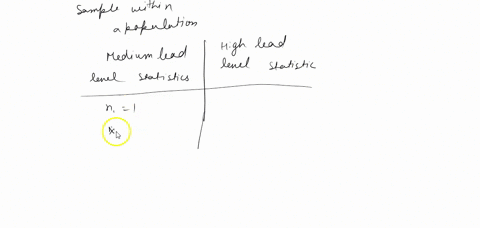 Sample within
a population
Medium lead
level statistics
High lead
level statistic
n₁ = 1
x